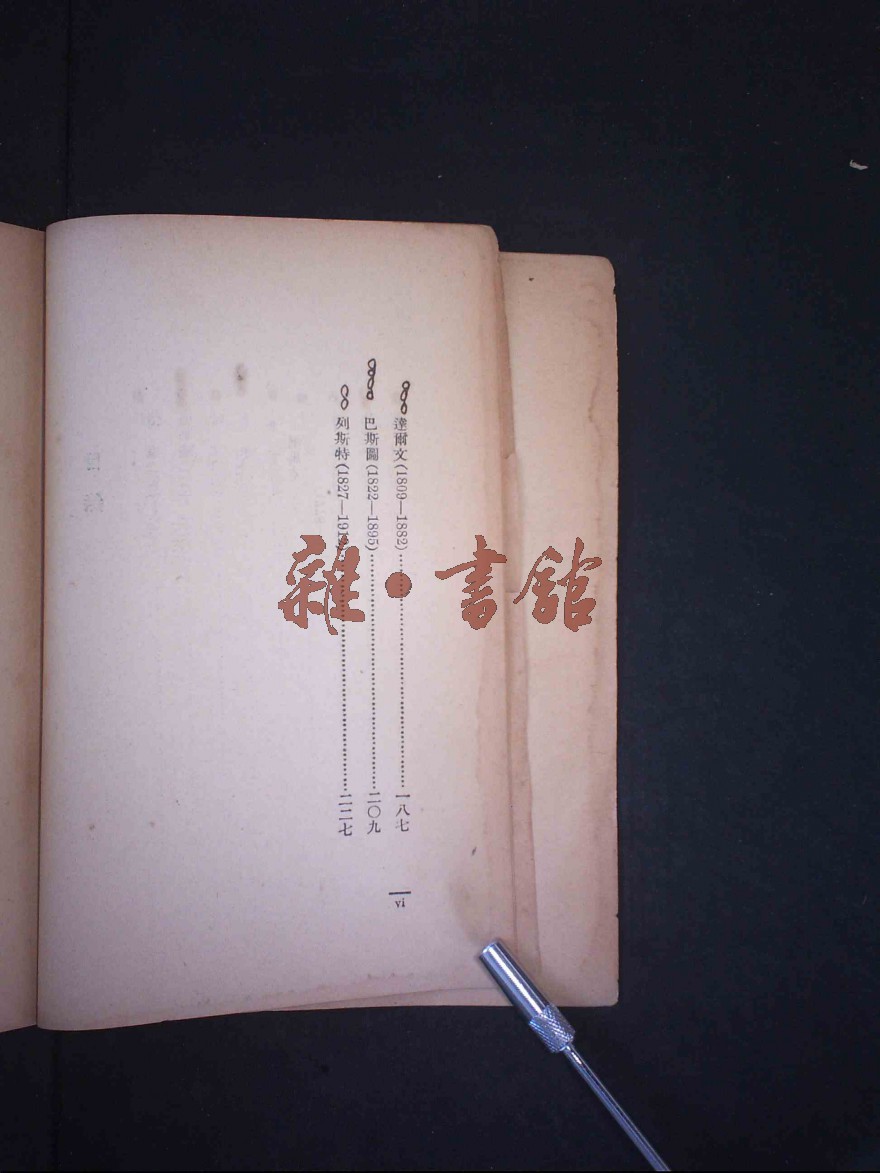 達爾文(1809—1882)……一八七
巴斯圖(1822—1895)……二〇九
列斯特(1827—191……二二七
vi
雜•書館